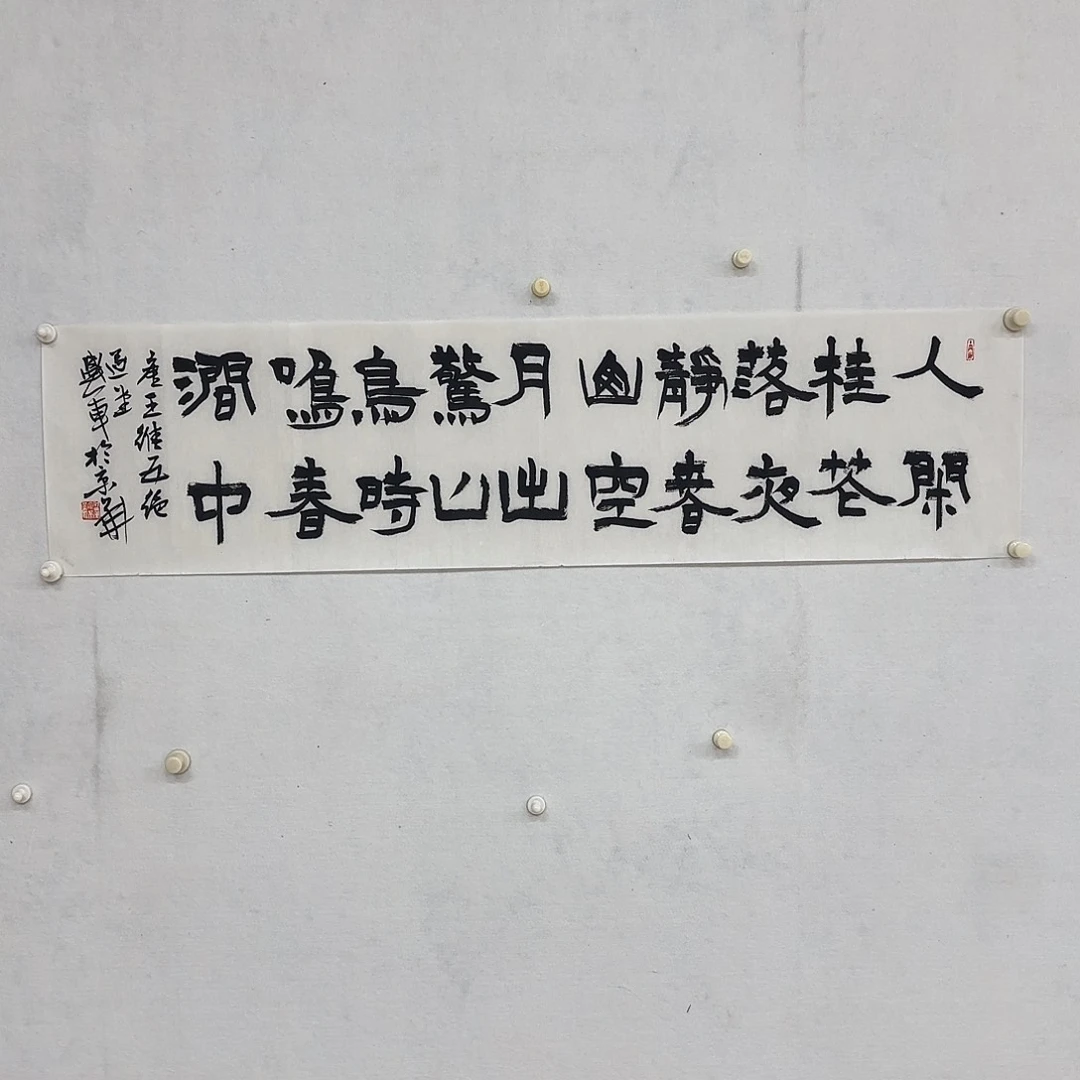 人閑
桂花
落夜
靜春
山空
月出
驚山
鳥時
鳴春
澗中
唐王維五絕
於京華